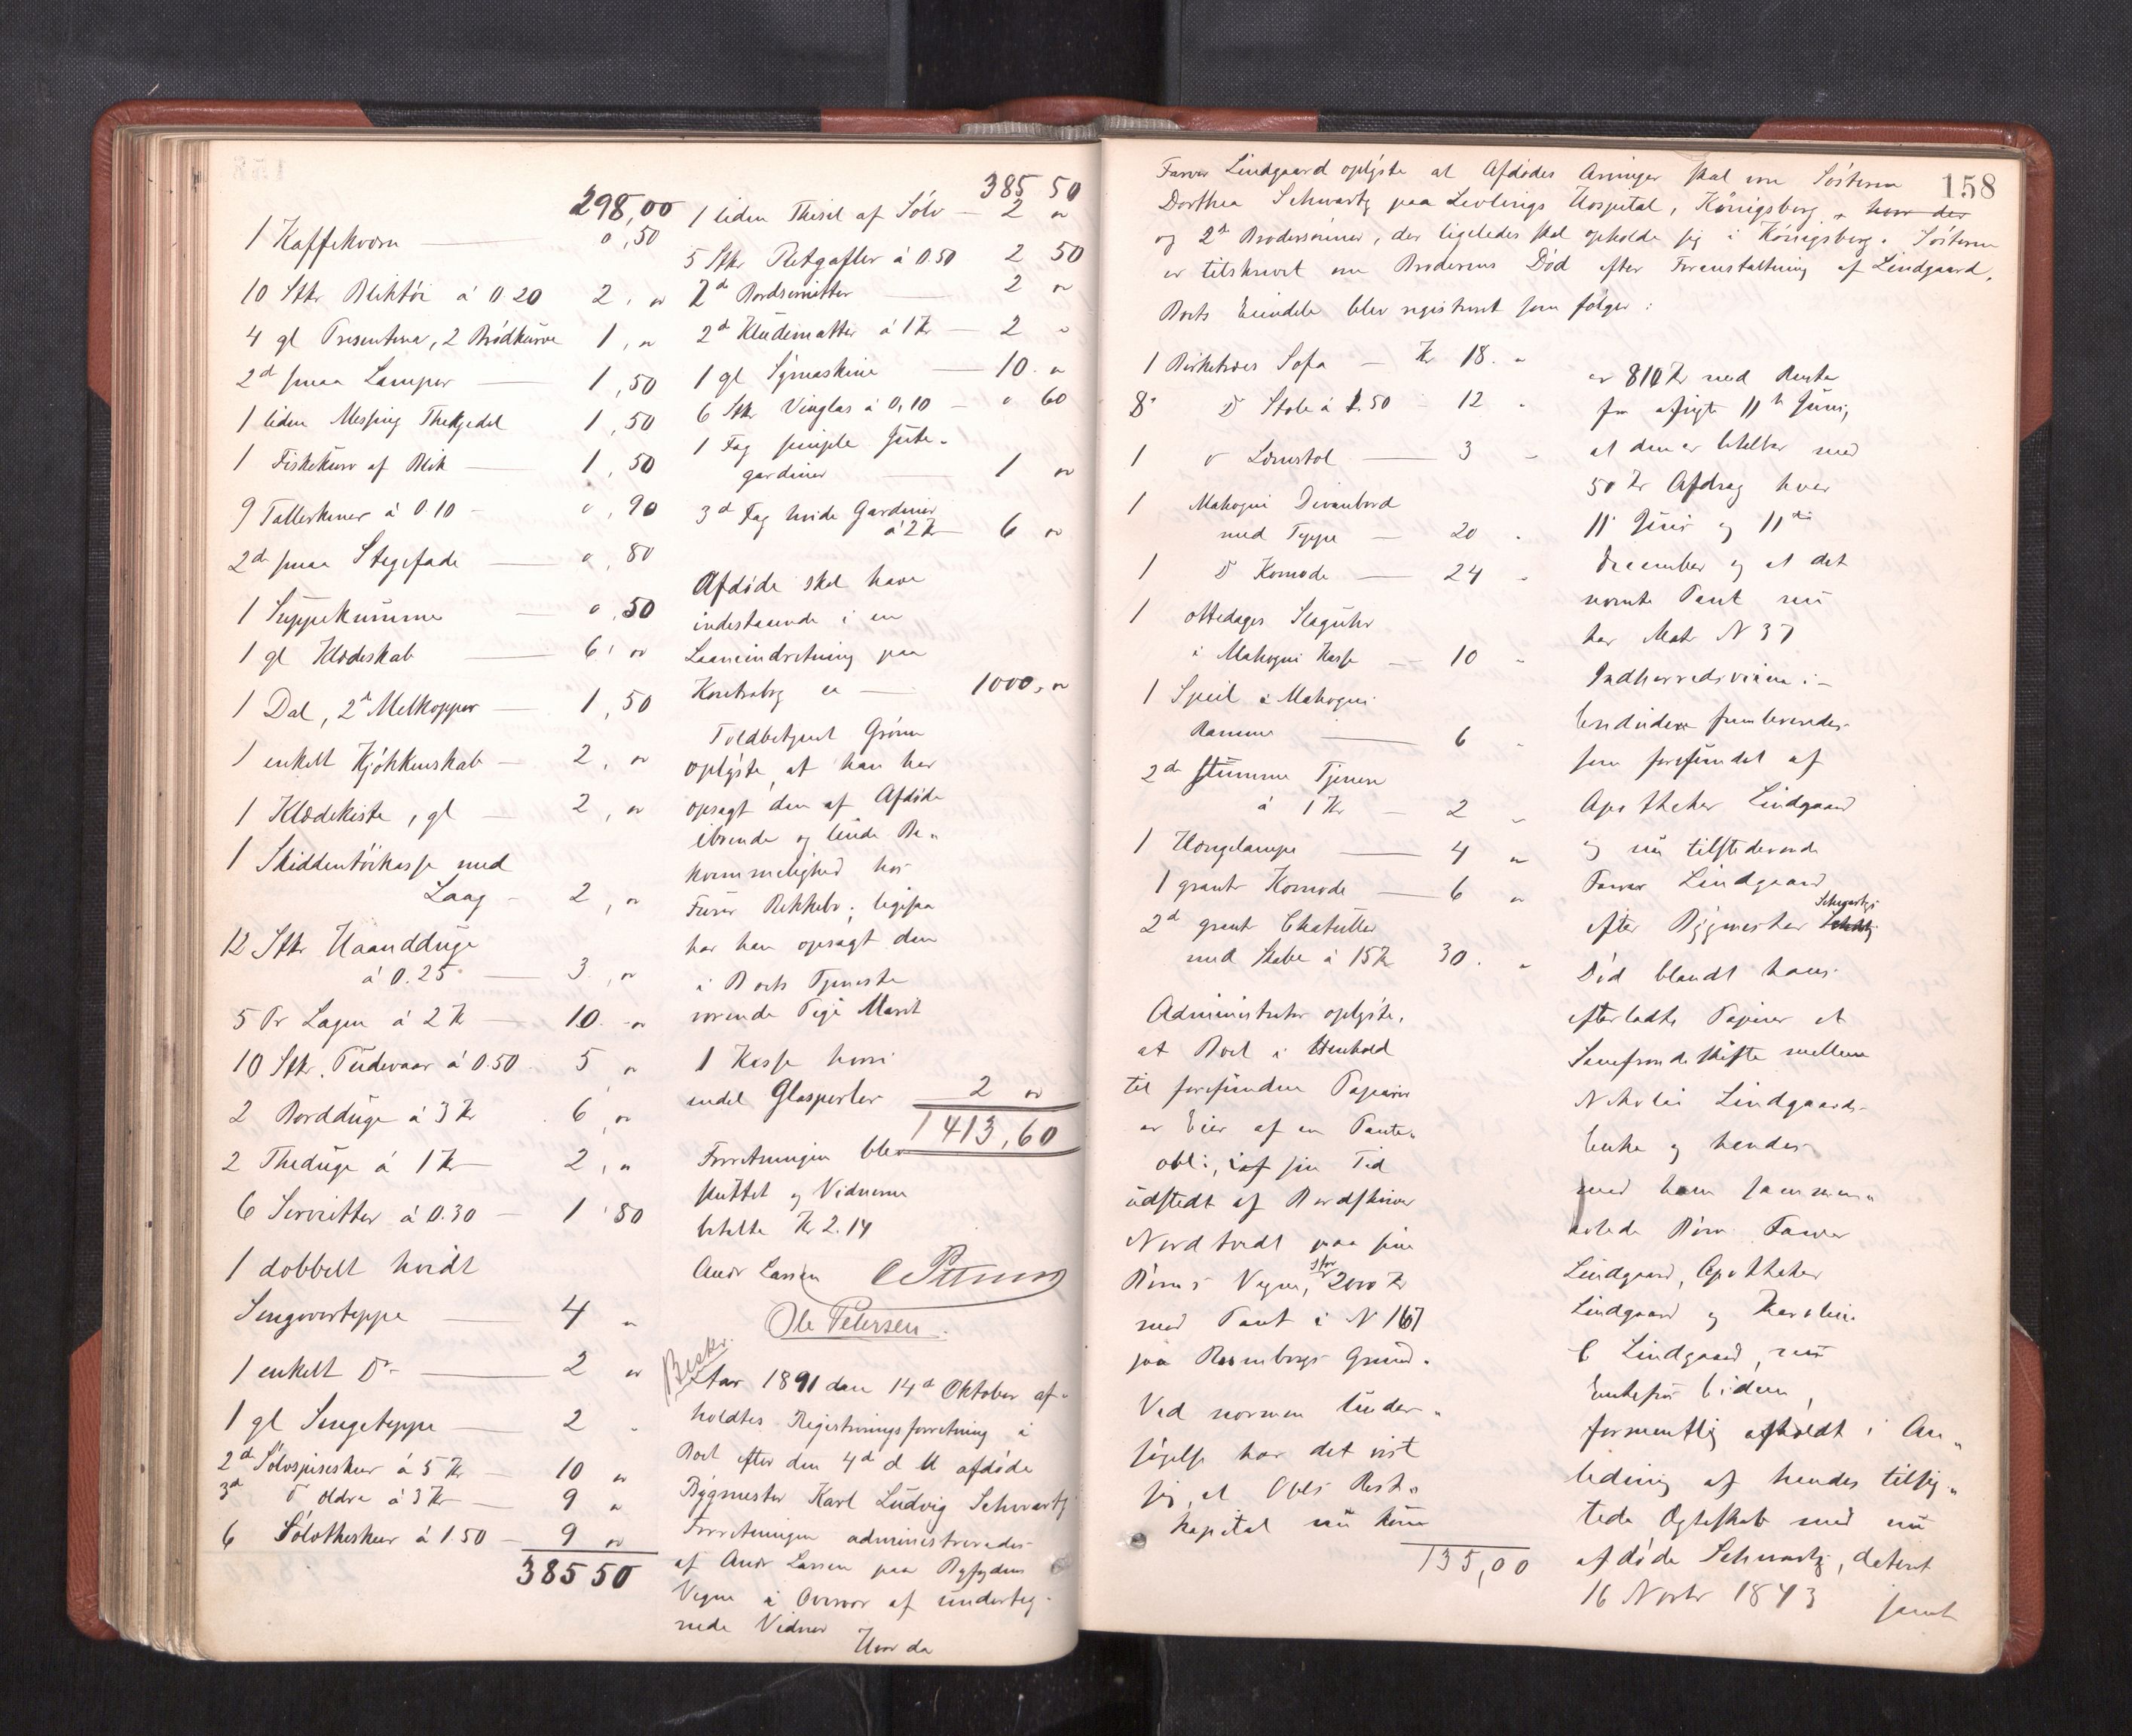 298,00
1 Kaffekværn — 0,50
10 Stkr Bliktøi à 0.20 2, "
4 gl Presenter, 2 Brødkurve 1, "
2d smaa Lamper — 1,50
1 liden Messing Thekjedel 1,50
1 Fiskekurv af Blik — 1,50
9 Tallerkener à 0.10 - 0,90
2de smaa Stegefade — 0,80
1 Suppekumme — 0,50
1 gl Klædeskab — 6, "
1 Dal, 2d Melkopper — 1,50
1 enkelt Kjøkkenskab — 2, "
1 Klædekiste, gl — 2, "
1 Skiddentøikasse med
Laag - 2, "
12 Stkr Haandduge
à 0.25 — 3, "
5 Pr Lagen à 2 Kr — 10. "
10 Stkr. Pudevaar à 0.50 5 "
2 Bordduge à 3 Kr 6, "
2 Theduge à 1 Kr — 2, "
6 Servietter à 0.30 — 1,80
1 dobbelt hvidt
Sengeverteppe — 4 "
1 enkelt Do — 2 "
1 gl Sengeteppe — 2 "
2de Sølvspiseskeer à 5 Kr — 10 "
3d Do ældre à 3 Kr — 9 "
6 Sølvtheskeer à 1.50 — 9 "
385 50
385 50
1 liden Thesil af Sølv — 2 "
5 Stkr Retgafler à 0.50 2 50
2d Bordservietter — 2 "
2d Kludematter à 1 Kr — 2 "
1 gl Symaskine — 10. "
6 Stkr Vinglas à 0,10 — 0 60
1 Fag simple Jute-
gardiner — 1 "
3d Fag hvide Gardiner
à 2 Kr — 6 "
Afdøde skal have
indestaaende i en
Laaneindretning paa
Kontrabog ca — 1000, "
Toldbetjent Grønn
oplyste, at han har
opsagt den af Afdøde
iboende og leiede Be-
kvemmelighed hos
Furer Rekkebo; ligesaa
har han opsagt den
i Boets Tjeneste
værende Pige Marit
1 Kasse hvori
endel Glasperler 2 "
1413,60
Forretningen blev
sluttet og Vidnerne
betalte Kr 2.14
Andr Larsen O Petersen
Ole Petersen.
Beskr.
Aar 1891 den 14d Oktober af-
holdtes Registreringsforretning i
Boet efter den 4d d M afdøde
Bygmester Karl Ludvig Schwartz
Forretningen administreredes
af Andr Larsen paa Byfogdens
Vegne i Overvær af underteg-
nede Vidner
Hvor da
158
Farver Lindgaard oplyste at Afdødes Arvinger skal være Søsteren
Dorthea Schwartz paa Hospital, Königsberg, hvor der
og 2d Brodersønner, der ligeledes skal opholde sig i Königsberg. Søsteren
er tilskrevet om Broderens Død efter Foranstaltning af Lindgaard.
Boets Eiendele blev registreret som følger:
1 Birketræes Sofa — Kr 18. "
8 Do Stole à 1.50 — 12 "
1 Do Lænstol — 3 "
1 Mahogni Divanbord
med Teppe — 20 "
1 Do Komode — 24 "
1 ottedages Slaguhr
i Mahogni Kasse — 10 "
1 Speil i Mahogni
Ramme — 6 "
2de stumme Tjenere
à 1 Kr — 2 "
1 Hængelampe — 4 "
1 grante Komode — 6 "
2d grante Chatuller
med Skabe à 15 Kr 30. "
Administrator oplyste,
at Boet i Henhold
til forefundne Papirer
er Eier af en Pante-
obl:, i sin Tid
udstedt af Bordskriver
Nordtvedt paa sine
Børns Vegne, stor 2000 Kr
med Pant i N 167
paa Rosenborgs Grund.
Ved nærmere Under-
søgelse har det vist
sig, at Obls Rest-
kapital nu kun
135,00
er 810 Kr med Rente
fra afvigte 11te Juni,
at den er betalbar med
50 Kr Afdrag hver
11 Juni og 11te
December og at det
nævnte Pant nu
har Matr N 37
Indherredsveien.
Endvidere fremleveredes
som forefundet af
Apotheker Lindgaard
og nu tilstedeværende
Farver Lindgaard
efter Bygmester Schwartz's
Død blandt hans
efterladte Papirer et
Samfrændeskifte mellem
Nikolai Lindgaards
Enke og hendes
med ham sammen-
avlede Børn Farver
Lindgaard, Apotheker
Lindgaard og Karoline
C Lindgaard, nu
Enkefru Eidem,
formentlig afholdt i An-
ledning af hendes tilsig-
tede Ægteskab med nu
afdøde Schwartz, dateret
16 Novbr 1873 samt